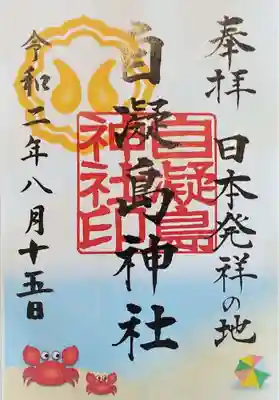 奉拝
日本発祥の地
自凝島神社
自凝島
神社印
令和二年八月十五日